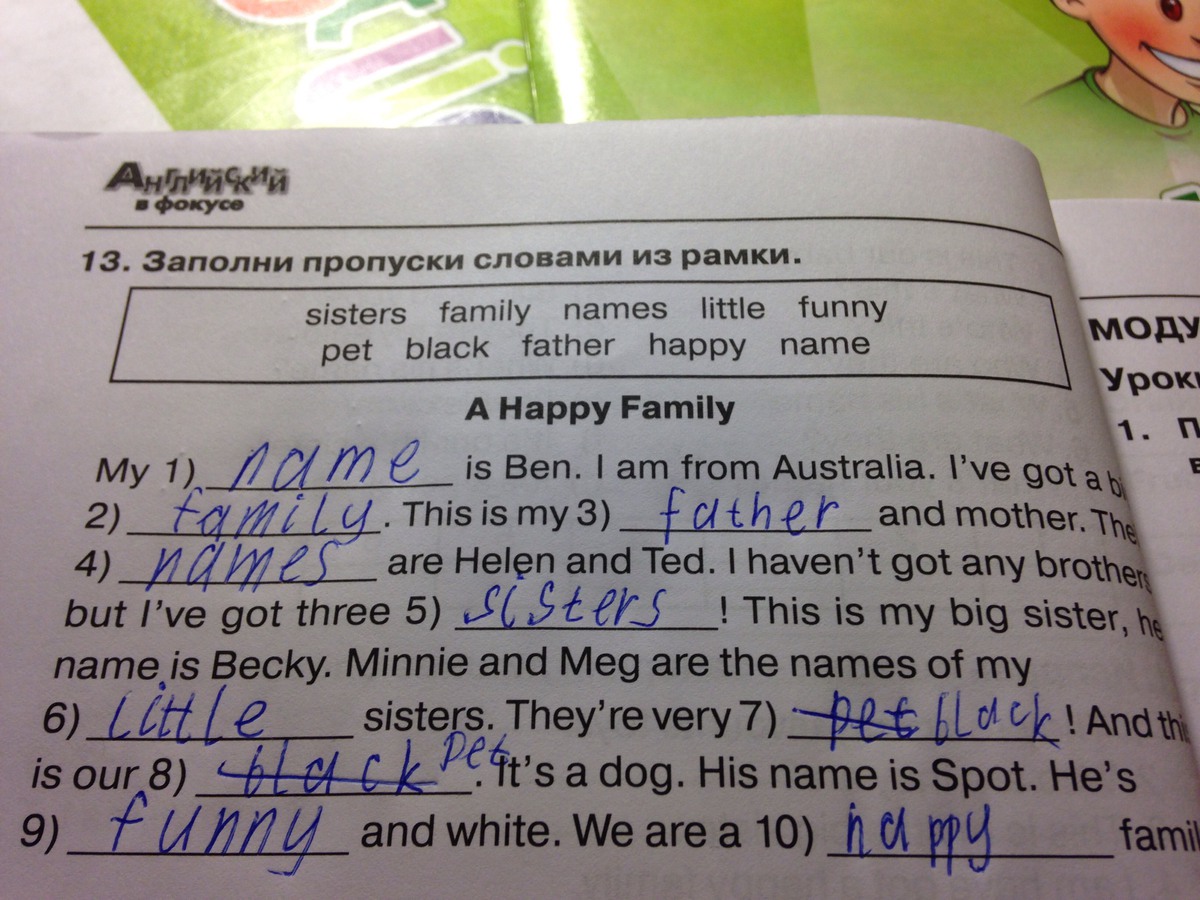 Английский
в фокусе
13. Заполни пропуски словами из рамки.
sisters family names little funny
pet black father happy name
A Happy Family
My 1) name is Ben. I am from Australia. I've got a
2) family. This is my 3) father and mother.
4) names are Helen and Ted. I haven't got any brothers
but I've got three 5) sisters! This is my big sister,
name is Becky. Minnie and Meg are the names of my
6) little sisters. They're very 7) pet black! And
is our 8) black pet. It's a dog. His name is Spot. He's
9) funny and white. We are a 10) happy
МОДУ
Урок
1. П